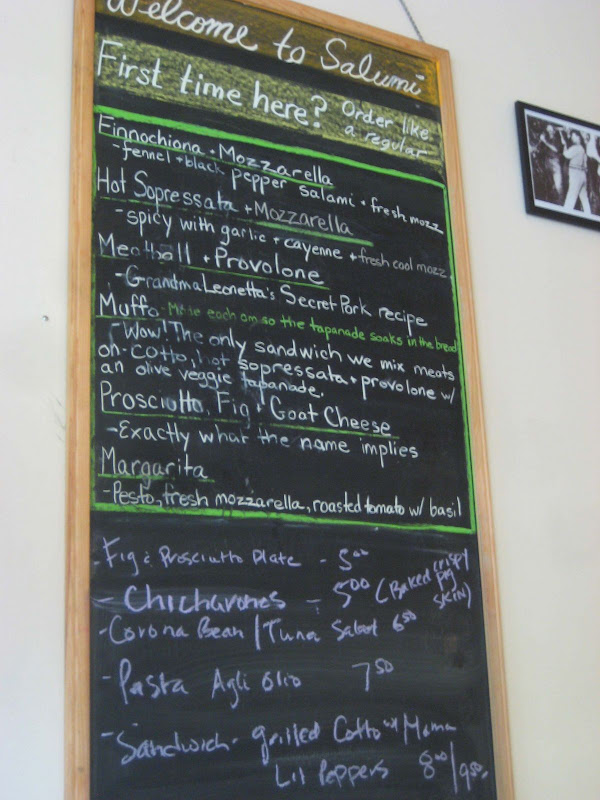 Welcome to Salumi
First time here? Order like
a regular
Finnochiona + Mozzarella
-fennel + black pepper salami + fresh mozz
Hot Sopressata + Mozzarella
-spicy with garlic + cayenne + fresh cool mozz
Meatball + Provolone
-Grandma Leonetta's Secret Pork recipe
Muffo- Made each am so the tapanade soaks in the bread
-Wow! The only sandwich we mix meats
on-cotto, hot sopressata + provolone w/
an olive veggie tapanade.
Prosciutto, Fig + Goat Cheese
-Exactly what the name implies
Margarita
-Pesto, fresh mozzarella, roasted tomato w/ basil
-Fig & Prosciutto Plate - 5.00
- Chicharones - 5.00 (Baked crispy
pig
skin)
-Corona Bean / Tuna Salad 6.50
-Pasta Agli Olio 7.50
-Sandwich- grilled Cotto w/ Mama
Lil Peppers 8.00/9.50